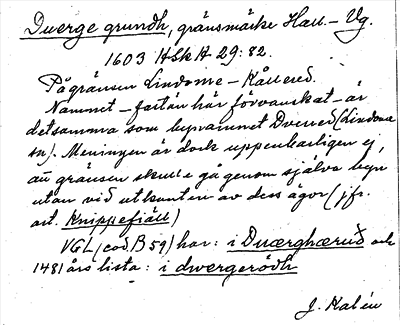 Dverge grundh, gränsmärke Hall.- Vg.
1603 HSkH 29:82.
På gränsen Lindome - Kållered.
Namnet - fastän här förvanskat - är
detsamma som bynamnet Dvered (Lindome
sn). Meningen är dock uppenbarligen ej,
att gränsen skulle gå genom själva byn
utan vid utkanten av dess ägor (jfr.
art. Knippefjäll)
VGL (cod. B 59) har: i Duærghæruð och
1481 års lista: i dwergerödh
J. Kalén